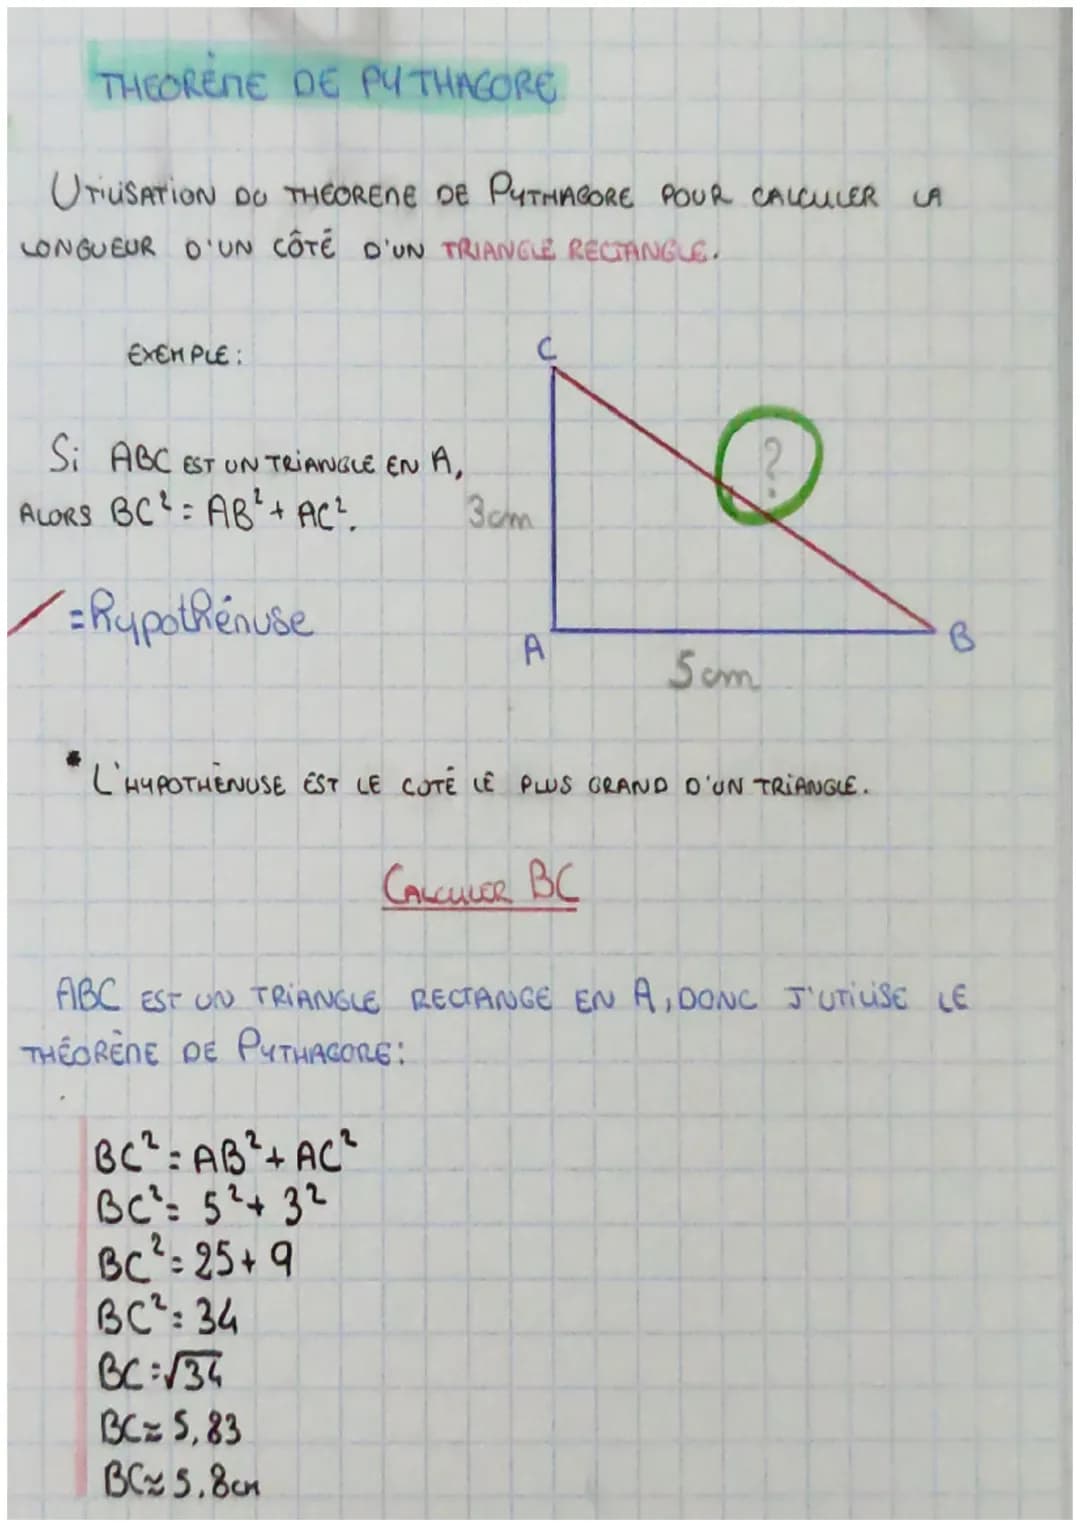 THEORÈME DE PYTHAGORE
UTILISATION DU THEOREME DE PYTHAGORE POUR CALCULER LA
LONGUEUR D'UN CÔTÉ D'UN TRIANGLE RECTANGLE.
EXEMPLE:
C
Si ABC EST UN TRIANGLE EN A,
?
ALORS BC² = AB² + AC².
3cm
= Rypothénuse
A
B
5cm
* L'HYPOTHÈNUSE EST LE COTÉ LE PLUS GRAND D'UN TRIANGLE.
CALCULER BC
ABC EST UN TRIANGLE RECTANGE EN A, DONC J'UTILISE LE
THÉORÈME DE PYTHAGORE:
BC² = AB² + AC²
BC² = 5² + 3²
BC² = 25 + 9
BC² = 34
BC = √34
BC ≈ 5,83
BC ≈ 5,8cm